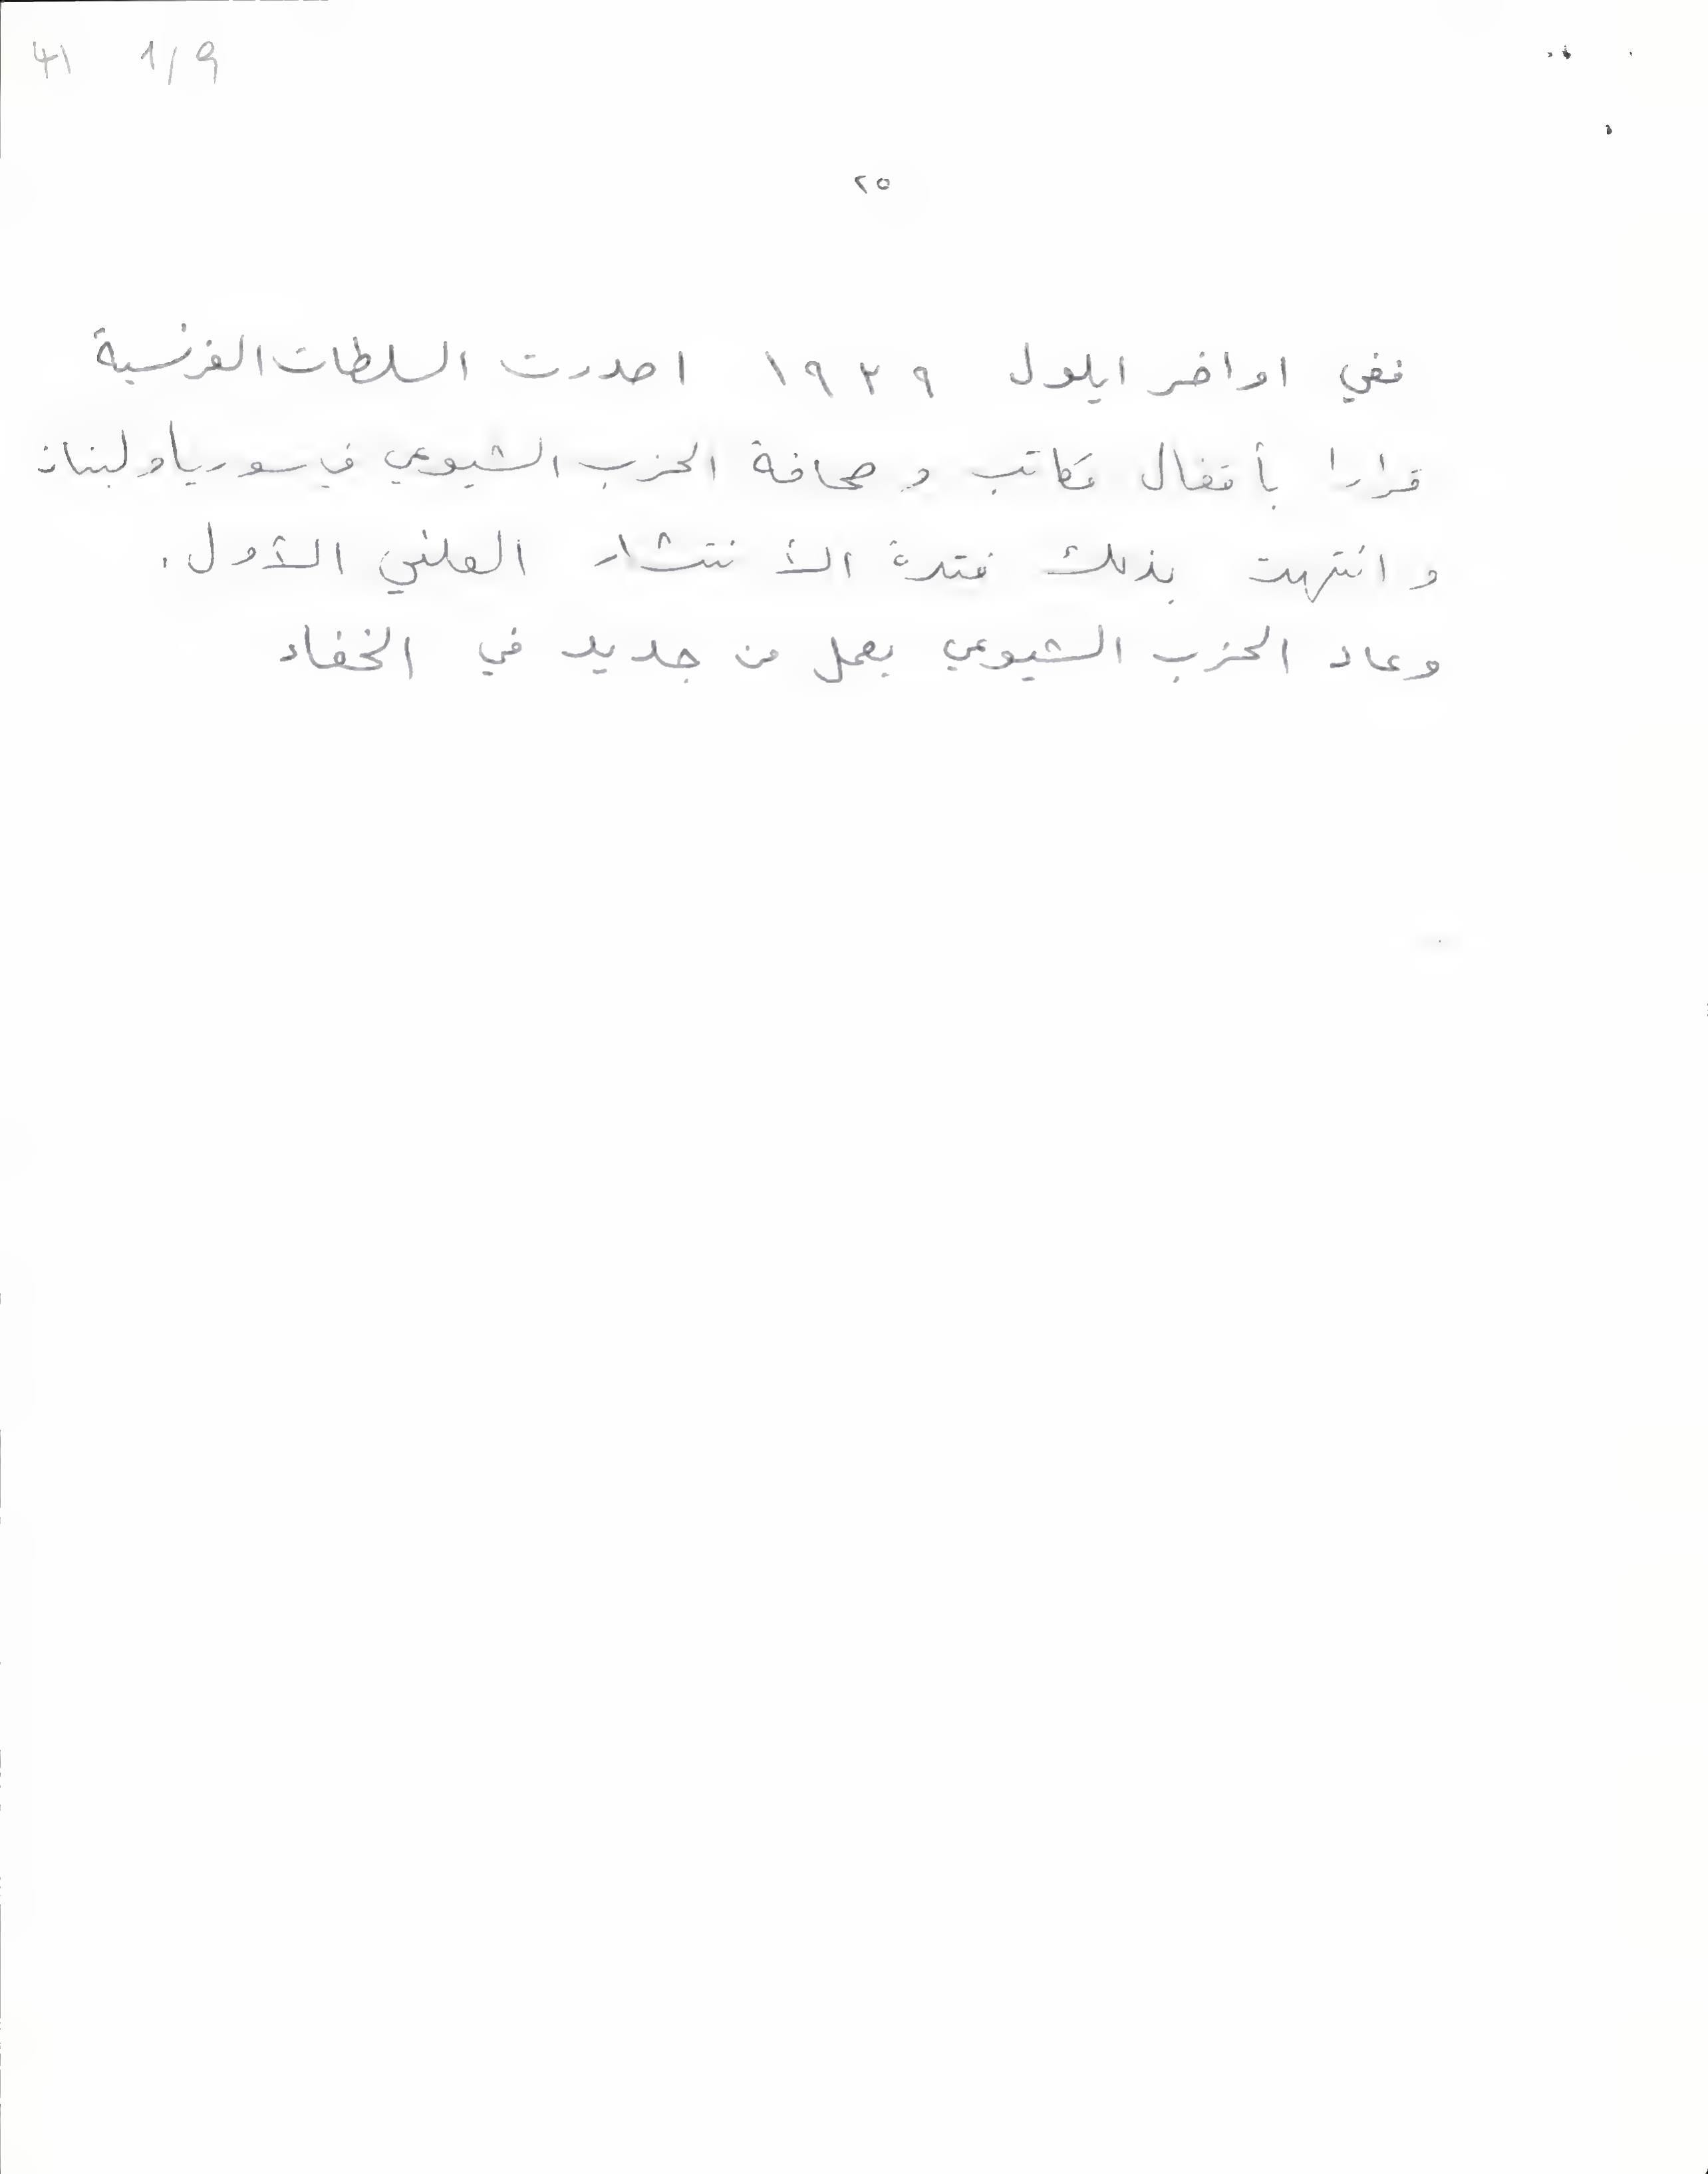 41 1/9
٢٥
ففي اواخر ايلول ١٩٣٩ اصدرت السلطات الفرنسية
قرارا بأقفال مكاتب و صحافة الحزب الشيوعي في سوريا ولبنان
و انتهت بذلك فترة الأنتشار العلني الأول.
وعاد الحزب الشيوعي يعمل من جديد في الخفاء